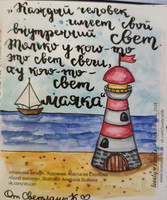 "Каждый человек
имеет свой
внутренний свет
Только у кого-то
это свет свечи,
а у кого-то -
свет
маяка"
От Светланы К